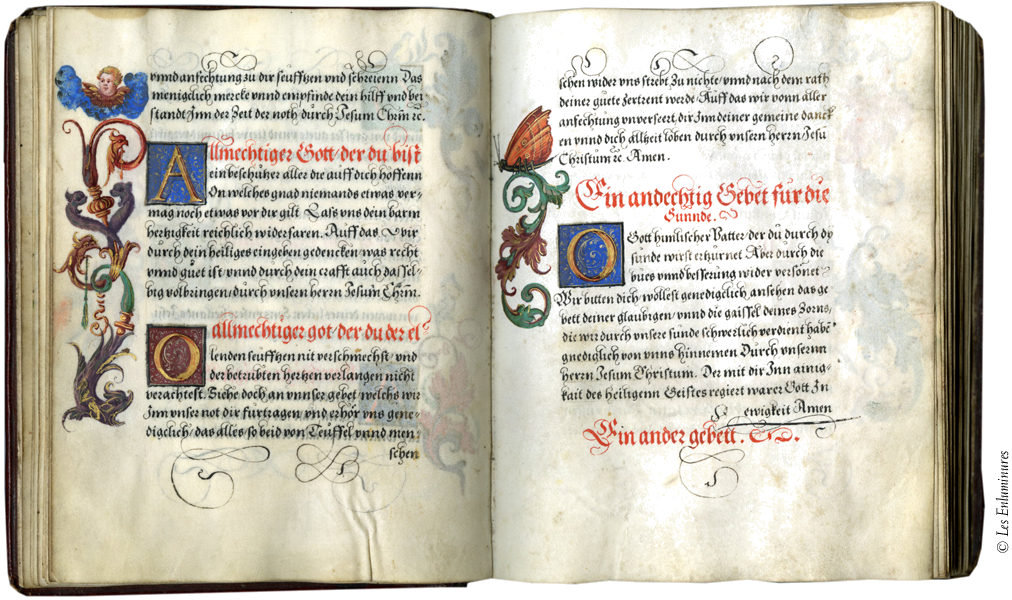 vnnd anfechtung zu dir seuffzen vnd schreienn Das
meniglich mercke vnnd empfinde dein hilff vnd ver
standt Inn der Zeit der noth durch Jesum Chrm̃ ꝛc.
Allmechtiger Gott / der du bist
ein beschützer aller die auff dich hoffenn
On welches gnad niemandts etwas ver-
mag noch etwas vor dir gilt Lass vns dein barm
hertzigkeit reichlich widerfaren. Auff das Wir
durch dein heiliges eingeben gedencken was recht
vnnd guet ist vnnd durch dein crafft auch dassel-
big volbringen / durch vnsern herrn Jesum Chrm̃.
O allmechtiger got / der du der el-
lenden seuffzen nit verschmechst / vnd
der betrubten hertzen verlangen nicht
verachtest. Siehe doch an vnnser gebet / welchs wir
Inn vnser not dir fürtragen vnd erhör vns gene-
digclich / das alles so beid von Teuffel vnnd men-
schen
schen wider vns strebt Zu nichte / vnnd nach dem rath
deiner guete Zertrent werde / Auff das wir vonn aller
anfechtung vnversert, dir Inn deiner gemeine danck
en vnnd dich allzeit loben durch vnsern herrn Jesu
Christum ꝛc. Amen.
Ein andechtig Gebet für die
Sunnde.
O Gott himlischer Vatter, der du durch dy
sünde wirst erzürnet Aber durch die
bues vnnd besserung wider versönet
Wir bitten dich, wollest genedigclich ansehen das ge
bett deiner glaubigen / vnnd die gaissel deines Zorns,
die wir durch vnsere sünde schwerlich verdient habe
gnediglich von vnns hinnemen Durch vnsernn
herrn Jesum Christum. Der mit dir Inn ainig-
kait des heiligenn Geistes regiert warer Gott Zu
ewigkeit Amen
Ein ander gebett.
© Les Enluminures